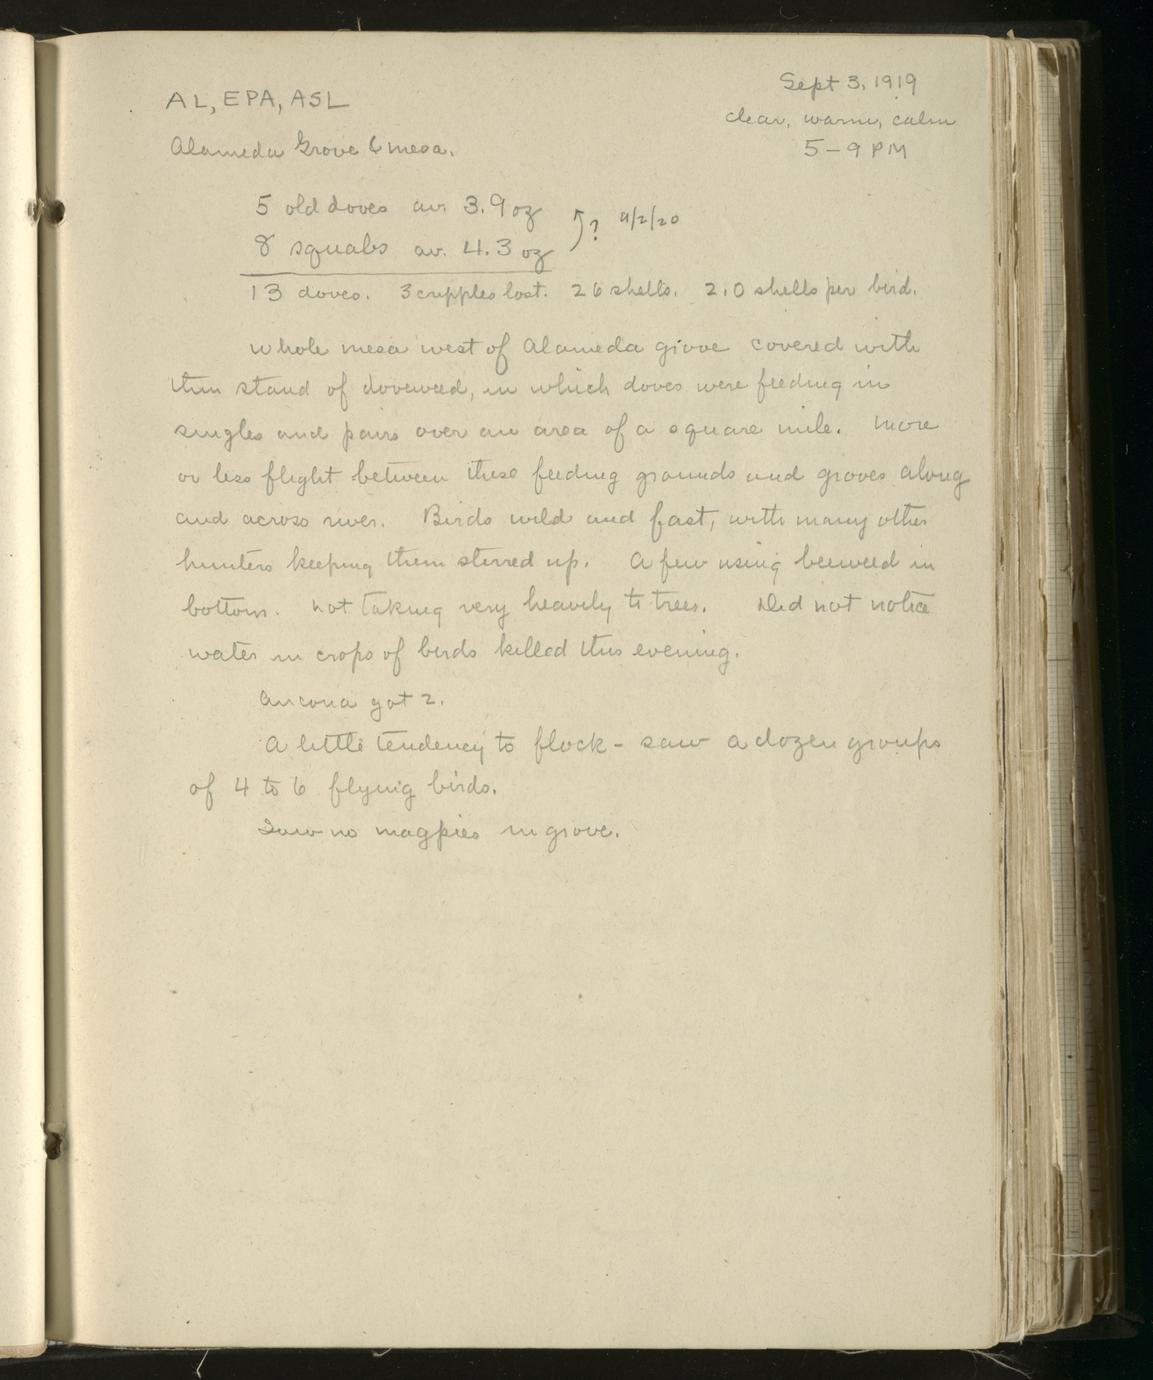 AL, EPA, ASL
Sept 3, 1919
clear, warm, calm
Alameda Grove & mesa.
5–9 PM
5 old doves av. 3.9 oz
8 squabs av. 4.3 oz
? 9/2/20
13 doves. 3 cripples lost. 26 shells. 2.0 shells per bird.
Whole mesa west of Alameda grove covered with
thin stand of doveweed, in which doves were feeding in
singles and pairs over an area of a square mile. More
or less flight between these feeding grounds and groves along
and across river. Birds wild and fast, with many other
hunters keeping them stirred up. A few using beeweed in
bottom. Not taking very heavily to trees. Did not notice
water in crops of birds killed this evening.
Ancona got 2.
A little tendency to flock – saw a dozen groups
of 4 to 6 flying birds.
Saw no magpies in grove.